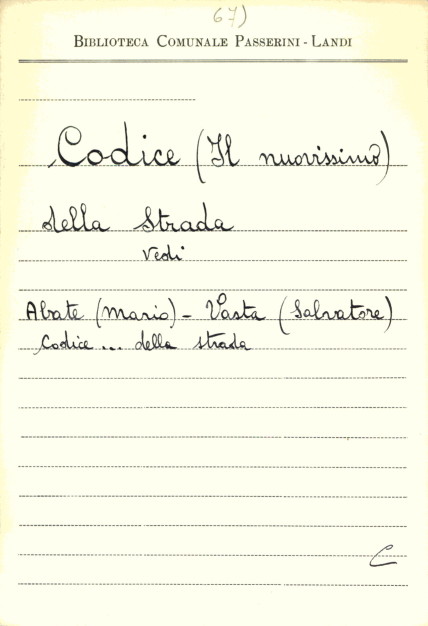 67)
BIBLIOTECA COMUNALE PASSERINI - LANDI
Codice (Il nuovissimo)
della Strada
Vedi
Abate (Mario) - Vasta (Salvatore)
Codice ... della strada
C